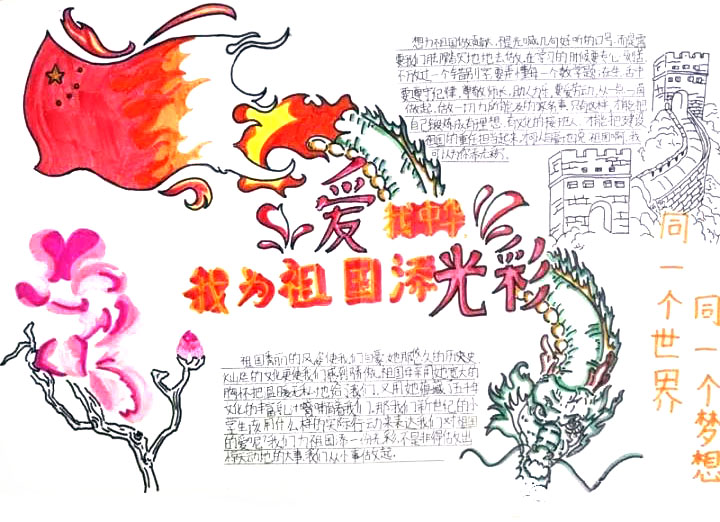 想为祖国做贡献,不是光喊几句好听的口号,而是需
要我们用脚踏实地地去做,在学习的时候要专心
不放过一个错别字,要弄懂每一个数学题,在生活中
要遵守纪律,尊敬师长,助人为乐,要爱劳动,从一点一滴
做起,做一切力所能及的家务事。只有这样,才能把
自己锻炼成有理想、有文化的接班人,才能把建设
祖国的重任担当起来,才可以自豪地说:祖国啊,我
可以为你添光彩。
爱
我中华
我为祖国添光彩
同一个世界
同一个梦想
祖国秀丽的风姿使我们自豪,她那悠久的历史
灿烂的文化更使我们感到骄傲。祖国母亲用她宽大的
胸怀把温暖无私地给了我们,又用她蕴藏了五千年
文化的丰富乳汁哺育着我们。那我们新世纪的小
学生该用什么样的实际行动来表达我们对祖国
的爱呢?我们为祖国添一份光彩,不是非得做出
惊天动地的大事,我们从小事做起。